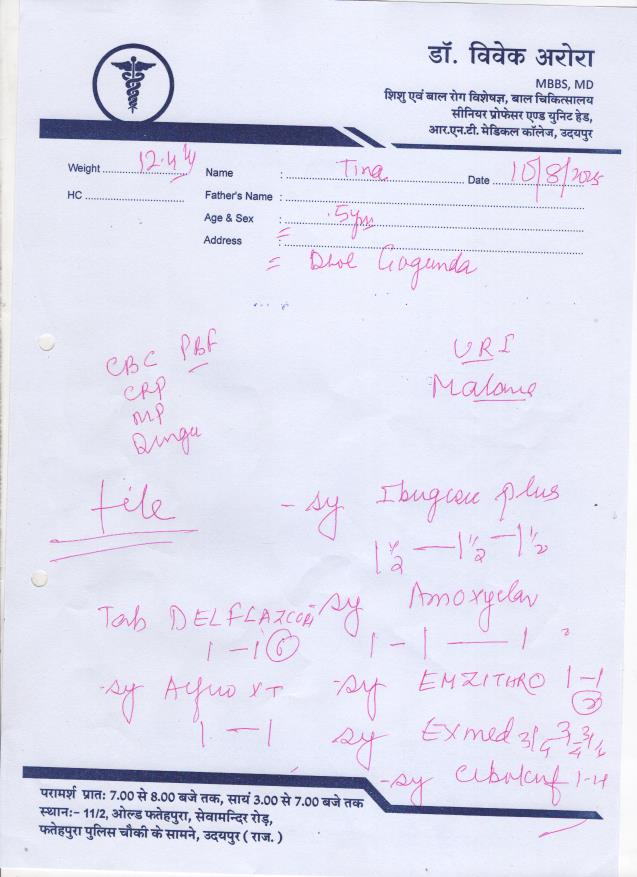 डॉ. विवेक अरोरा
MBBS, MD
शिशु एवं बाल रोग विशेषज्ञ, बाल चिकित्सालय
सीनियर प्रोफेसर एण्ड युनिट हेड,
आर.एन.टी. मेडिकल कॉलेज, उदयपुर
Weight 12.4 Name : Tina Date 10/8/2025
HC Father's Name :
Age & Sex : 5yrs
Address :
= Dhol Gogunda
CBC PBF
CRP
MP
URI
file
- Sy Ibugesic plus
1 1/2 — 1 1/2 - 1 1/2
Tab DELFLAZCORT
1 - 1
Sy Amoxyclav
1 - 1 — 1
- Sy
1 - 1
- Sy EMZITHRO 1 - 1
Sy Exmed 3/4 - 3/4 - 3/4
- Sy
परामर्श प्रातः 7.00 से 8.00 बजे तक, सायं 3.00 से 7.00 बजे तक
स्थानः- 11/2, ओल्ड फतेहपुरा, सेवामन्दिर रोड़,
फतेहपुरा पुलिस चौकी के सामने, उदयपुर ( राज. )